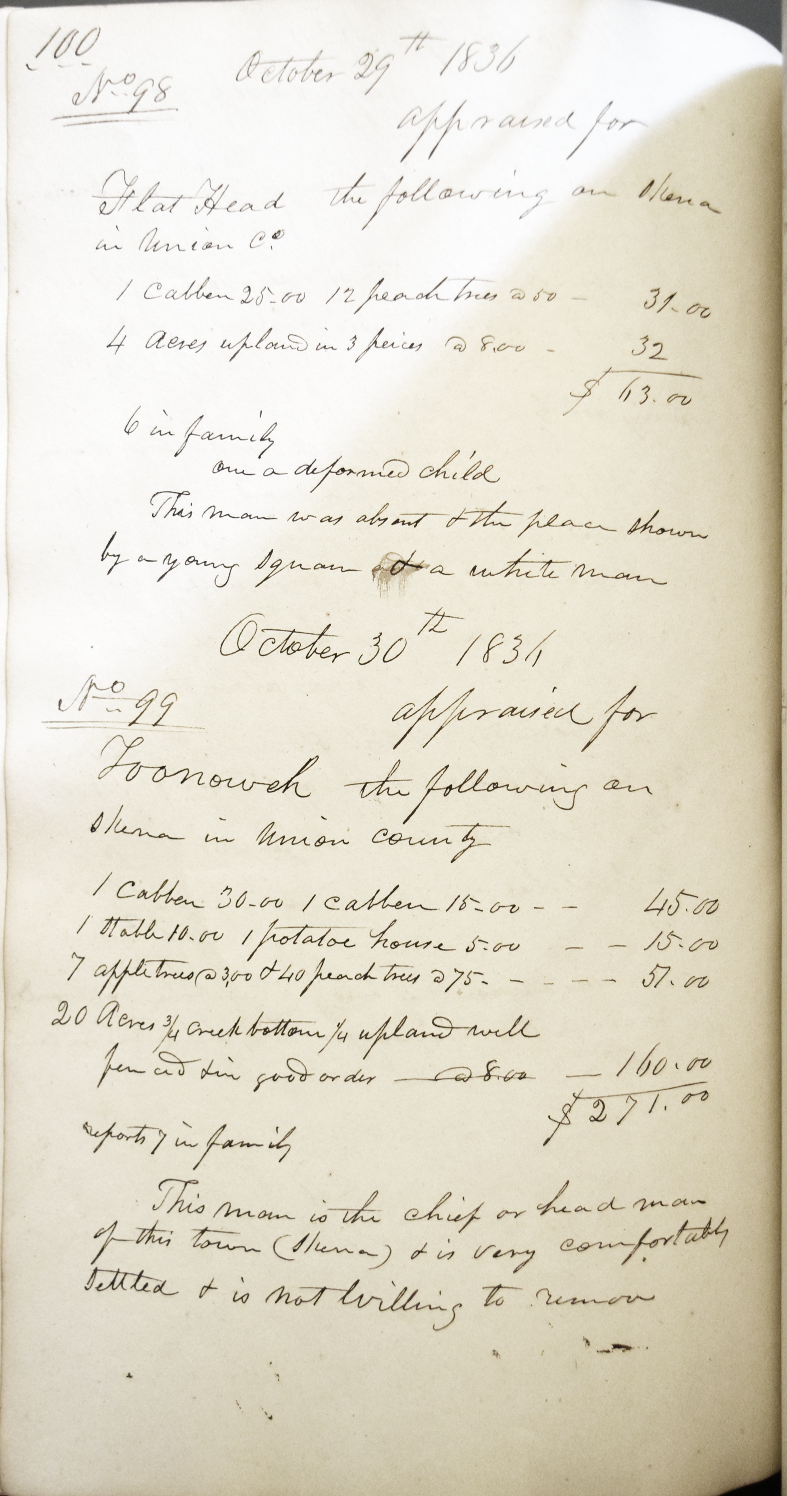 100
No 98
October 29th 1836
appraised for
Flat Head the following on Skena
in Union Co
1 Cabben 25-00 12 peach trees @ 50 - 31.00
4 Acres upland in 3 peices @ 8.00 - 32
$ 63.00
6 in family
one a deformed child
This man was absent & the place shown
by a young squaw & a white man
October 30th 1836
No 99
appraised for
the following on
Skena in Union county
1 Cabben 30-00 1 cabben 15-00 - - 45.00
1 Stable 10.00 1 potatoe house 5.00 - - 15.00
7 apple trees @ 3,00 & 40 peach trees @ 75- - - - - 51.00
20 Acres 3/4 creek bottom 1/4 upland well
fenced & in good order - @ 8.00 - 160.00
$ 271.00
reports 7 in family
This man is the chief or head man
of this town (Skena) & is very comfortably
settled & is not willing to remove